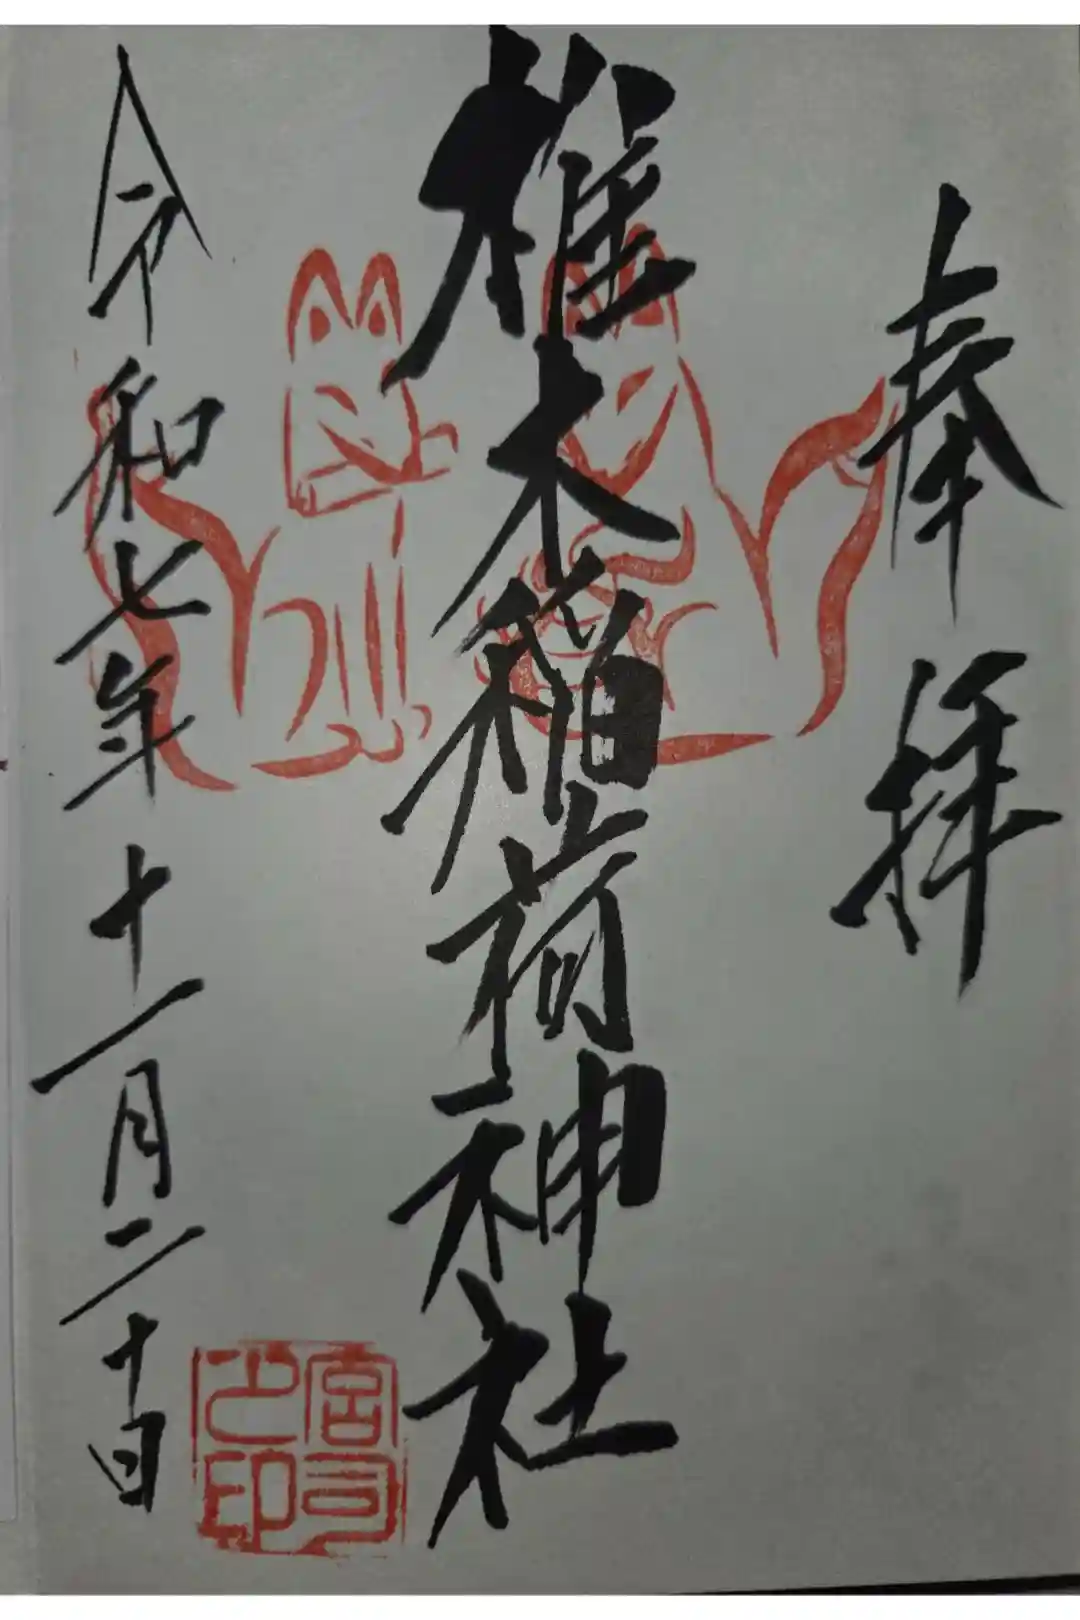 奉拝
椎木稲荷神社
令和七年十一月二十日
宮司之印